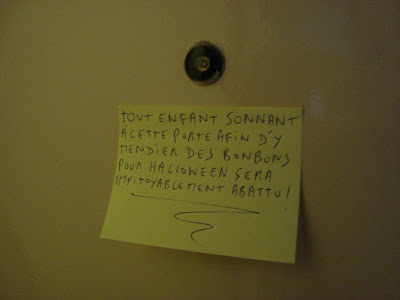 TOUT ENFANT SONNANT
À CETTE PORTE AFIN D'Y
MENDIER DES BONBONS
POUR HALLOWEEN SERA
IMPITOYABLEMENT ABATTU !